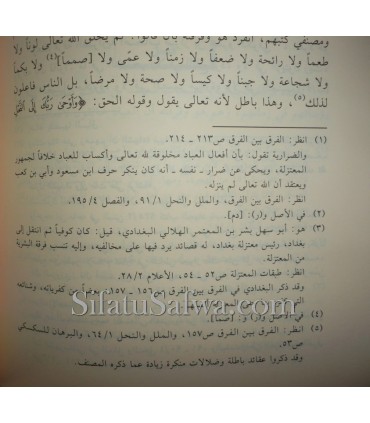 ومصنفي كتبهم، انفرد هو وفرقة بأن قالوا: لم يخلق الله تعالى لوناً ولا
طعماً ولا رائحة ولا ضعفاً ولا زمناً ولا عمًى ولا [صمماً](٤) ولا بكماً
ولا شجاعة ولا جبناً ولا كيساً ولا صحة ولا مرضاً، بل الناس فاعلون
لذلك(٥)، وهذا باطل لأنه تعالى يقول وقوله الحق: ﴿وَأَوْحَى رَبُّكَ إِلَى النَّحْلِ
(١) انظر: الفرق بين الفرق ص٢١٣ ـ ٢١٤.
والضرارية تقول: بأن أفعال العباد مخلوقة لله تعالى وأكساب للعباد خلافاً لجمهور
المعتزلة، ويحكى عن ضرار ـ نفسه ـ أنه كان ينكر حرف ابن مسعود وأبي بن كعب
ويعتقد أن الله تعالى لم ينزله.
انظر: الفرق بين الفرق، والملل والنحل ٩١/١، والفصل ١٩٥/٤.
(٢) في الأصل و(ر): [دم].
(٣) هو: أبو سهل بشر بن المعتمر الهلالي البغدادي، قيل: كان كوفياً ثم انتقل إلى
بغداد، رئيس معتزلة بغداد، له قصائد يرد فيها على مخالفيه، وإليه تنسب فرقة البشرية
من المعتزلة.
انظر: طبقات المعتزلة ص٥٢ ـ ٥٤، الأعلام ٢٨/٢.
وقد ذكر البغدادي في الفرق بين الفرق ص١٥٦ ـ ١٥٧، بعضاً من كفرياته، وشنائعه
SilatuSalwa.com
(٤) في الأصل و(ر) و: [صما].
(٥) انظر: الفرق بين الفرق ص١٥٧، والملل والنحل ٦٤/١، والبرهان للسكسكي
ص٥٣.
وقد ذكروا عقائد باطلة وضلالات منكرة زيادة عما ذكره المصنف.